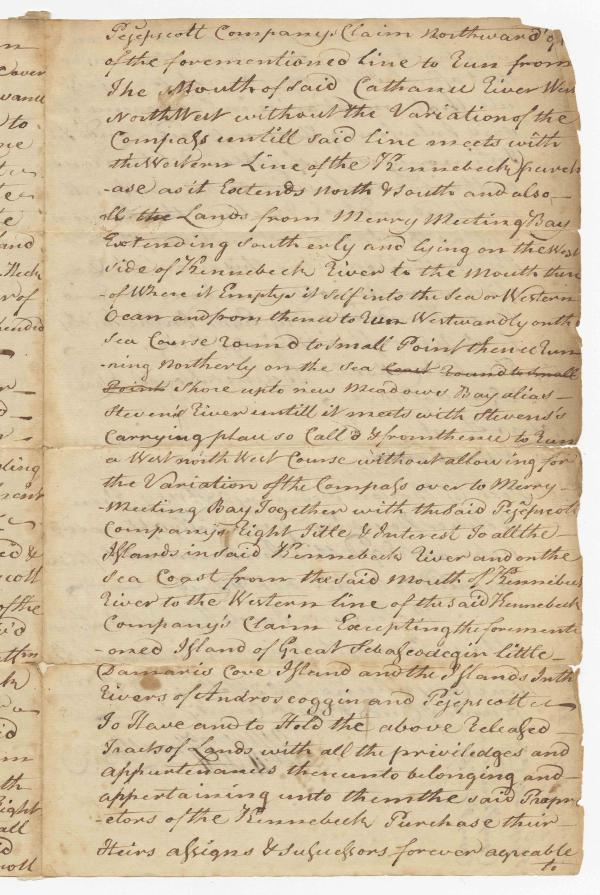 Pejepscott Company's Claim Northward of
of the forementioned line to Run from
The Mouth of said Cathance River West
NorthWest without the Variation of the
Compass untill said line meets with
the Western Line of the Kennebeck Purch
-ase as it Extends North & South and also
all the Lands from Merry Meeting Bay
Extending Southerly and lying on the West
side of Kennebeck River to the Mouth there
-of Where it Emptys it self into the Sea or Western
Ocean and from thence to Run Westwardly on the
Sea Course round to small Point thence Run
-ning Northerly on the Sea Coast round to small
Point shore up to new Meadows Bay alias
Stevens River untill it meets with Stevens's
Carrying place so Call'd & from thence to Run
a West north West Course without allowing for
the Variation of the Compass over to Merry
Meeting Bay Together with the said Pejepscott
Company's Right Title & Interest To all the
Islands in said Kennebeck River and on the
Sea Coast from the said Mouth of Kennebeck
River to the Western line of the said Kennebeck
Company's Claim Excepting the foremente
-oned Island of Great Sebascodegin little
Damaris Cove Island and the Islands In the
Rivers of Androscoggin and Pejepscott
To Have and to Hold the above Released
Tracts of Lands with all the priviledges and
appurtenances thereunto belonging and
appertaining unto them the said Propri
-etors of the Kennebeck Purchase their
Heirs assigns & Successors forever agreeable
to